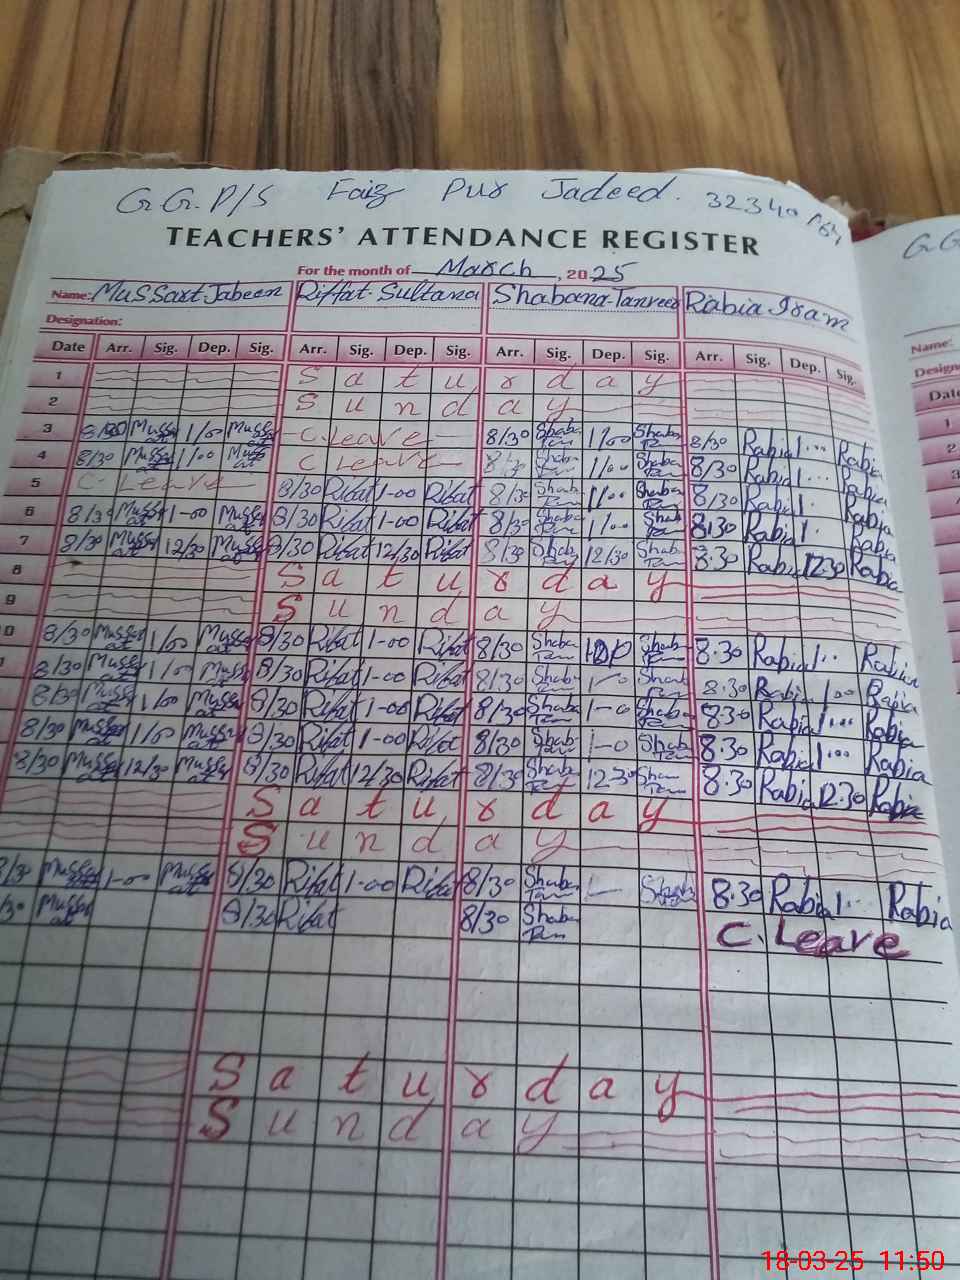 G.G.P/S Faiz Pur Jadeed. 32340
TEACHERS' ATTENDANCE REGISTER
For the month of March, 2025
Name: Mussart Jabeen Riffat Sultana Shabana Tanveer Rabia Iram
Designation:
Date Arr. Sig. Dep. Sig. Arr. Sig. Dep. Sig. Arr. Sig. Dep. Sig. Arr. Sig. Dep. Sig.
1 Saturday
2 Sunday
3 8/30 Mussarat 1/00 Mussarat C.Leave 8/30 Shaba Tan 1/00 Shaba Tan 8/30 Rabia 1... Rabia
4 8/30 Mussarat 1/00 Mussarat C Leave 8/30 Shaba Tan 1/00 Shaba Tan 8/30 Rabia 1... Rabia
5 C-Leave 8/30 Rifat 1-00 Rifat 8/30 Shaba Tan 1/00 Shaba Tan 8/30 Rabia 1. Rabia
6 8/30 Mussarat 1-00 Mussarat 8/30 Rifat 1-00 Rifat 8/30 Shaba Tan 1/00 Shaba 8:30 Rabia 1. Rabia
7 8/30 Mussarat 12/30 Mussarat 8/30 Rifat 12/30 Rifat 8/30 Shaba Tan 12/30 Shaba Tan 8:30 Rabia 12 30 Rabia
8 Saturday
9 Sunday
0 8/30 Mussarat 1/00 Mussarat 8/30 Rifat 1-00 Rifat 8/30 Shaba Tan Shaba Tan 8.30 Rabia 1.. Rabia
8/30 Mussarat 1/00 Mussarat 8/30 Rifat 1-00 Rifat 8/30 Shaba Tan 1-0 Shaba Tan 8.30 Rabia 1 00 Rabia
8/30 Mussarat 1/00 Mussarat 8/30 Rifat 1-00 Rifat 8/30 Shaba Tan 1-0 Shaba Tan 8.30 Rabia 1... Rabia
8/30 Mussarat 1/00 Mussarat 8/30 Rifat 1-00 Rifat 8/30 Shaba Tan 1-0 Shaba 8.30 Rabia 1... Rabia
8/30 Mussarat 12/30 Mussarat 8/30 Rifat 12/30 Rifat 8/30 Shaba Tan 12 30 Sha Tan 8.30 Rabia 12.30 Rabia
Saturday
Sunday
8/30 Mussarat 1-00 Mussarat 8/30 Rifat 1-00 Rifat 8/30 Shaba Tan Shaba 8.30 Rabia 1... Rabia
/30 Mussarat 8/30 Rifat 8/30 Shaba Tan C. Leave
Saturday
Sunday
G.G
Name:
Design
Date
1
2
3
18-03-25 11:50